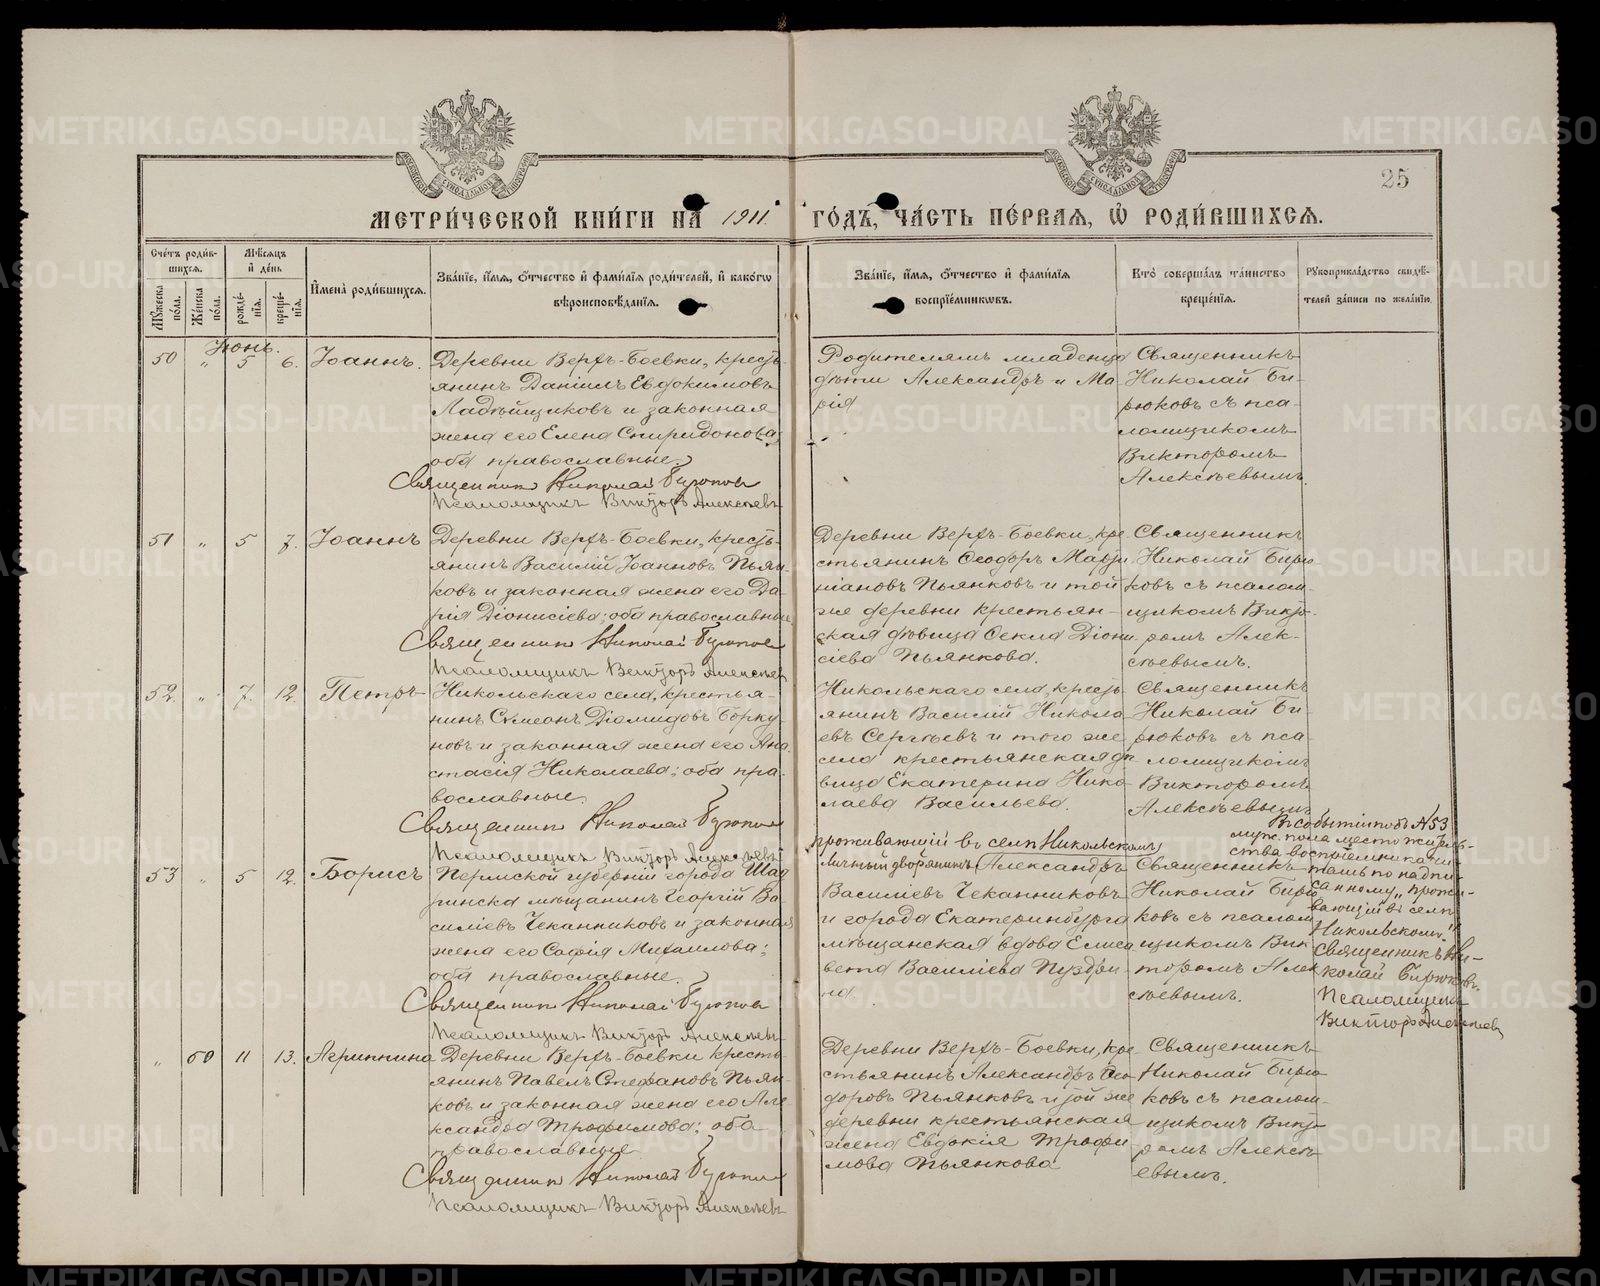 25
МЕТРИ́ЧЕСКОЙ КНИ́ГИ НА 1911 ГО́ДЪ, ЧА́СТЬ ПЕ́РВАЯ, Ѽ РОДИ́ВШИХСЯ.
Сче́тъ роди́вшихся.
Му́жеска по́ла.
Же́нска по́ла.
Мѣ́сяцъ и де́нь
рожде́нїя.
креще́нїя.
Имена̀ роди́вшихся.
Зва́нїе, и́мя, о́тчество и фами́лїя роди́телей, и како́гѡ вѣроисповѣ́данїя.
Зва́нїе, и́мя, о́тчество и фами́лїя воспрїе́мникѡвъ.
Кто̀ соверша́лъ та́инство креще́нїя.
Рукоприкла́дство свидѣ́телей за́писи по жела́нїю.
Іюнь.
50 " 5 6. Іоаннъ.
Деревни Верхъ-Боевки, кресть-
янинъ Даніилъ Евдокимовъ
Ладѣйщиковъ и законная
жена его Елена Спиридонова;
оба православные.
Священникъ Николай Бирюковъ
Псаломщикъ Викторъ Алексѣевъ
Родителямъ младенца
дѣти Александръ и Ма-
рія
Священникъ
Николай Би-
рюковъ съ пса-
ломщикомъ
Викторомъ
Алексѣевымъ.
51 " 5 7. Іоаннъ
Деревни Верхъ-Боевки, кресть-
янинъ Василій Іоанновъ Пьян-
ковъ и законная жена его Да-
рія Діонисіева; оба православные
Священникъ Николай Бирюковъ
Псаломщикъ Викторъ Алексѣевъ
Деревни Верхъ-Боевки, кре-
стьянинъ Ѳеодоръ
Пьянковъ и той
же деревни крестьян-
ская дѣвица Ѳекла Діони-
сіева Пьянкова.
Священникъ
Николай Бирю-
ковъ съ псалом-
щикомъ Викто-
ромъ Алек-
сѣевымъ.
52. " 7. 12. Петръ
Никольскаго села, крестья-
нинъ Сѵмеонъ Діомидовъ Борку-
новъ и законная жена его Ана-
стасія Николаева; оба пра-
вославные.
Священникъ Николай Бирюковъ
Псаломщикъ Викторъ Алексѣевъ
Никольскаго села, кресть-
янинъ Василій Никола-
евъ Сергѣевъ и того же
села крестьянская дѣ-
вица Екатерина Нико-
лаева Васильева.
Священникъ
Николай Би-
рюковъ съ пса-
ломщикомъ
Викторомъ
Алексѣевымъ
53 " 5 12. Борисъ
Пермской губерніи города Шад-
ринска мѣщанинъ Георгій Ва-
силіевъ Чеканниковъ и законная
жена его Софія Михаилова;
оба православные.
Священникъ Николай Бирюковъ
Псаломщикъ Викторъ Алексѣевъ
проживающій въ селѣ Никольскомъ,
Личный дворянинъ Александръ
Василіевъ Чеканниковъ
и города Екатеринбурга
мѣщанская вдова Елиса-
вета Василіева Пуздри-
на.
Священникъ
Николай Бирю-
ковъ съ псалом-
щикомъ Вик-
торомъ Алек-
сѣевымъ.
Въ событіи подъ №53
муж. пола мѣсто житель-
ства воспріемника чи-
тать по надпи-
санному „прожи-
вающій въ селѣ
Никольскомъ."
Священникъ Ни-
колай Бирюковъ.
Псаломщикъ
Викторъ Алексѣевъ
" 60 11 13. Агриппина
Деревни Верхъ-Боевки кресть-
янинъ Павелъ Стефановъ Пьян-
ковъ и законная жена его Але-
ксандра Трофимова; оба
православные
Священникъ Николай Бирюковъ
Псаломщикъ Викторъ Алексѣевъ
Деревни Верхъ-Боевки, кре-
стьянинъ Александръ Ѳео-
доровъ Пьянковъ и той же
деревни крестьянская
жена Евдокія Трофи-
мова Пьянкова
Священникъ
Николай Бирю-
ковъ съ псалом-
щикомъ Викто-
ромъ Алексѣ-
евымъ.
METRIKI.GASO-URAL.RU